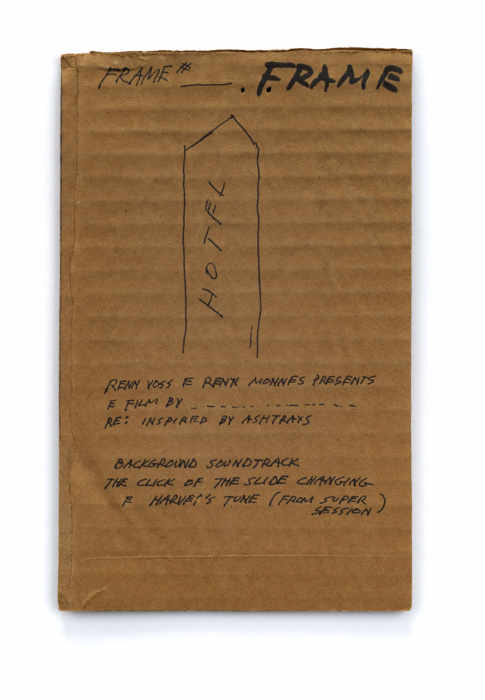 FRAME # ___ . FRAME
HOTEL
RENN VOSS E RENN MONNES PRESENTS
E FILM BY _ _ _ _ _ _ _ _ _ _ _
RE: INSPIRED BY ASHTRAYS
BACKGROUND SOUNDTRACK
THE CLICK OF THE SLIDE CHANGING
E HARVEY'S TUNE (FROM SUPER
SESSION)